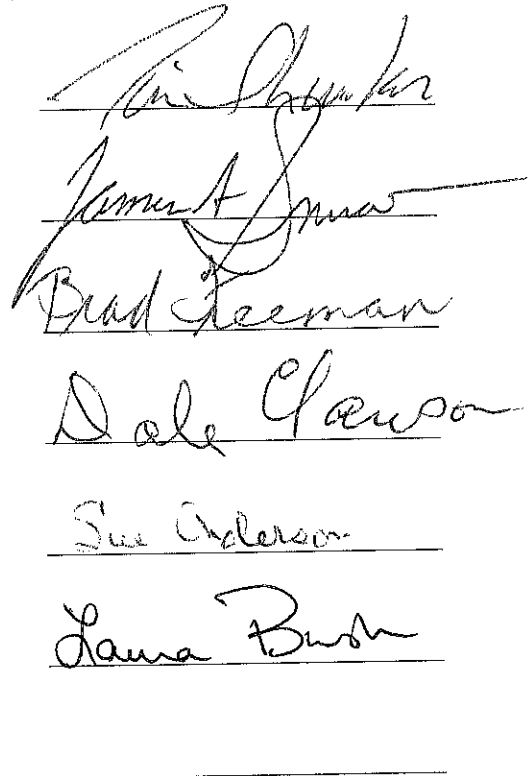 Tim
James A
Brad Freeman
Dale Clawson
Sue Anderson
Laura Bush